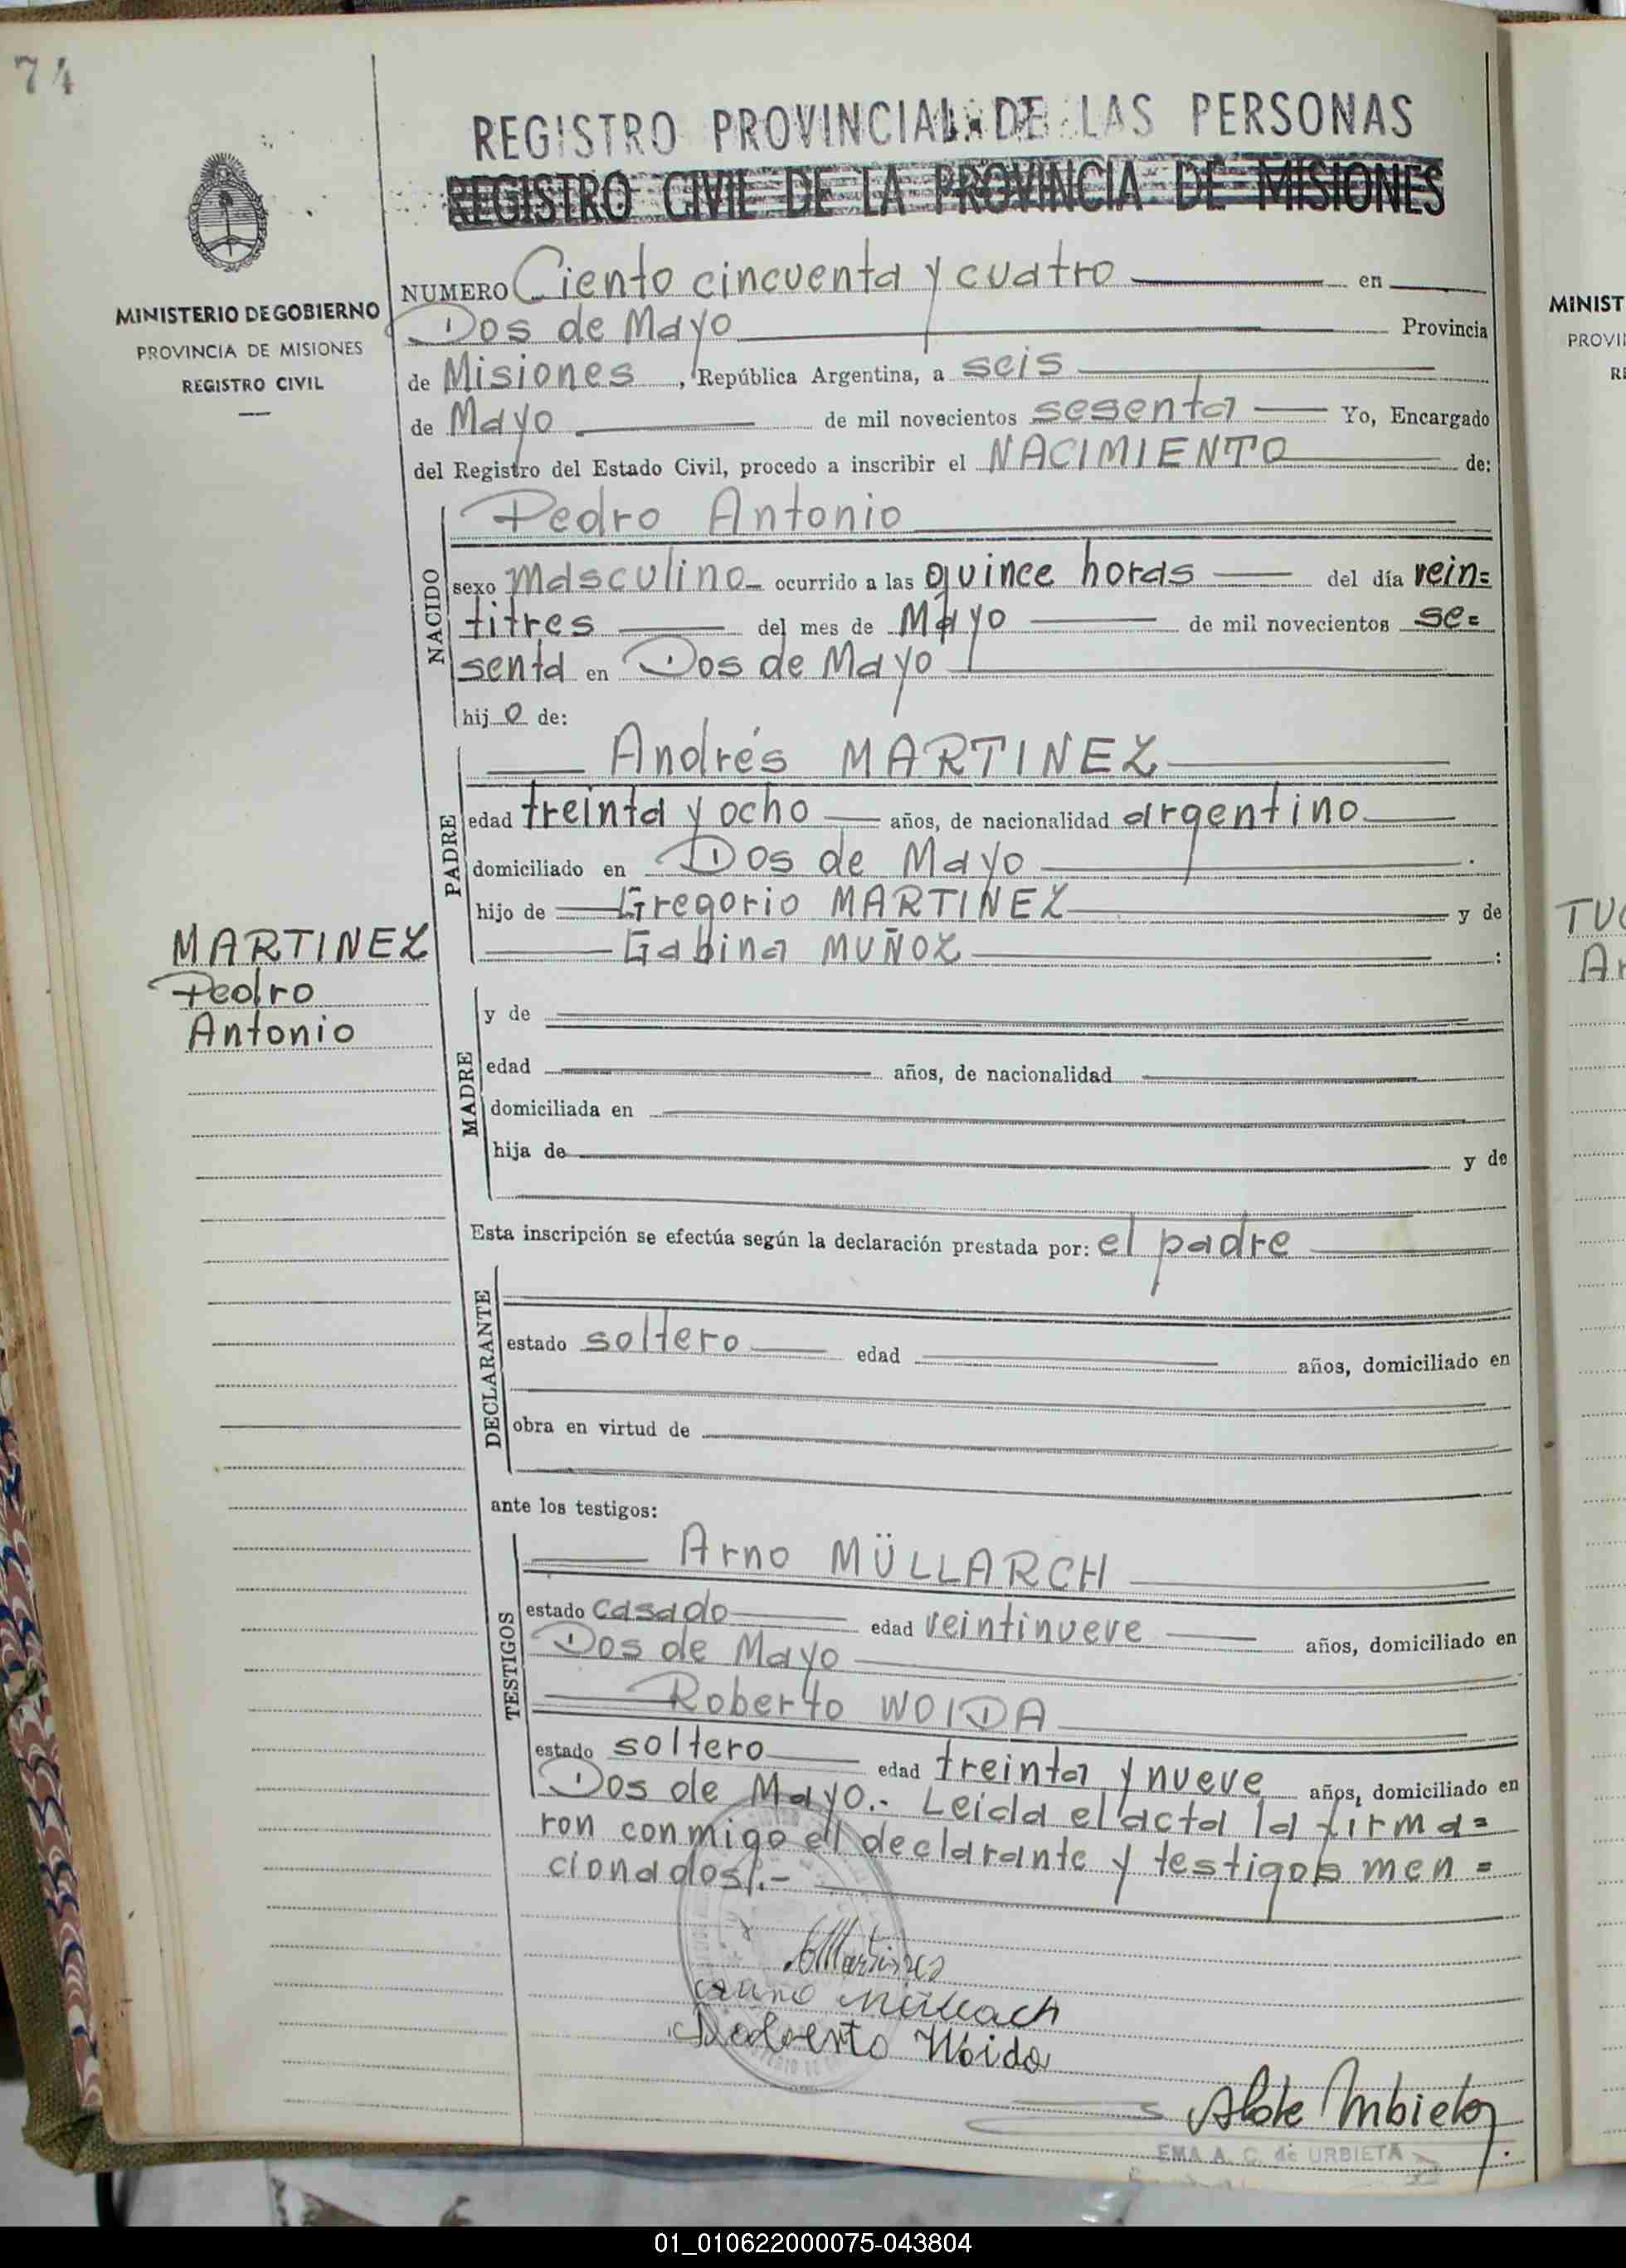 74
REGISTRO PROVINCIAL DE LAS PERSONAS
REGISTRO CIVIL DE LA PROVINCIA DE MISIONES
MINISTERIO DE GOBIERNO
PROVINCIA DE MISIONES
REGISTRO CIVIL
NUMERO Ciento cincuenta y cuatro en
Dos de Mayo Provincia
de Misiones, República Argentina, a seis
de Mayo de mil novecientos sesenta Yo, Encargado
del Registro del Estado Civil, procedo a inscribir el NACIMIENTO de:
NACIDO
Pedro Antonio
sexo masculino ocurrido a las quince horas del día vein=
titres del mes de Mayo de mil novecientos se=
senta en Dos de Mayo
hijo de:
PADRE
Andrés MARTINEZ
edad treinta y ocho años, de nacionalidad argentino
domiciliado en Dos de Mayo .
hijo de Gregorio MARTINEZ y de
Gabina MUÑOZ :
MARTINEZ
Pedro
Antonio
MADRE
y de
edad años, de nacionalidad
domiciliada en
hija de y de
Esta inscripción se efectúa según la declaración prestada por: el padre
DECLARANTE
estado soltero edad años, domiciliado en
obra en virtud de
ante los testigos:
TESTIGOS
Arno MÜLLARCH
estado casado edad veintinueve años, domiciliado en
Dos de Mayo
Roberto WOIDA
estado soltero edad treinta y nueve años, domiciliado en
Dos de Mayo.- Leida el acta la firma=
ron conmigo el declarante y testigos men=
cionados.-
Martinez
Arno Müllach
Roberto Woida
EMA A. C. de URBIETA
MINIST
PROVI
RE
TU
A
01_010622000075-043804